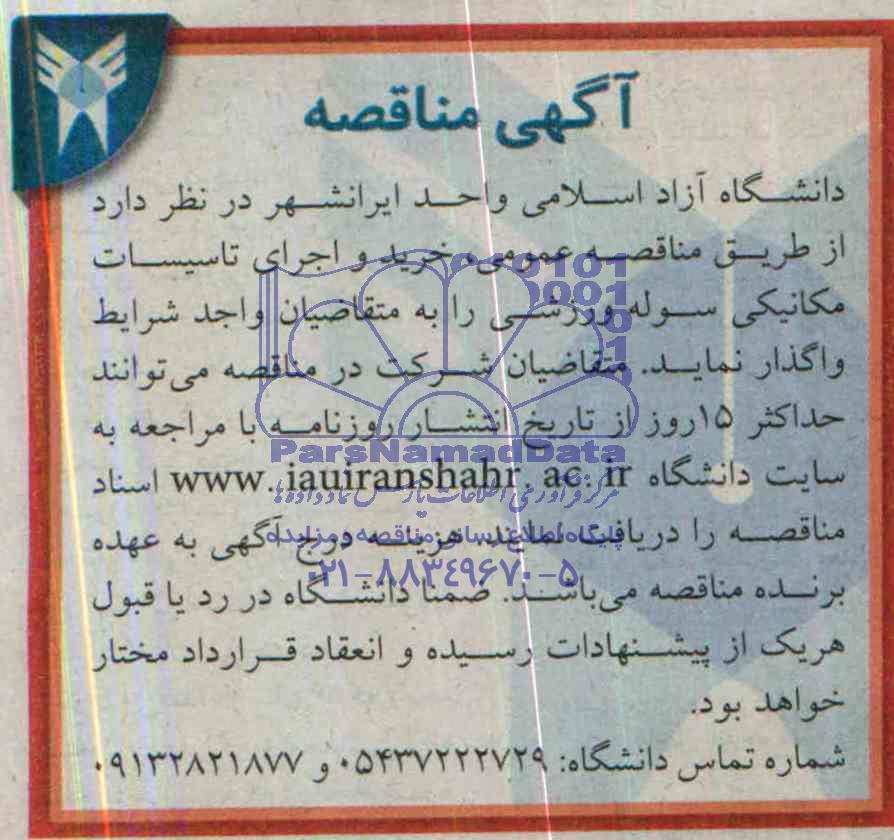 آگهی مناقصه
دانشگاه آزاد اسلامی واحد ایرانشهر در نظر دارد
از طریق مناقصه عمومی، خرید و اجرای تاسیسات
مکانیکی سوله ورزشی را به متقاضیان واجد شرایط
واگذار نماید. متقاضیان شرکت در مناقصه می‌توانند
حداکثر ۱۵روز از تاریخ انتشار روزنامه با مراجعه به
سایت دانشگاه www.iauiranshahr.ac.ir اسناد
مناقصه را دریافت نمایند. هزینه درج آگهی به عهده
برنده مناقصه می‌باشد. ضمنا دانشگاه در رد یا قبول
هریک از پیشنهادات رسیده و انعقاد قرارداد مختار
خواهد بود.
شماره تماس دانشگاه: ۰۵۴۳۷۲۲۲۷۲۹ و ۰۹۱۳۲۸۲۱۸۷۷
ParsNamadData
مرکز فرآوری اطلاعات پارس نماد داده‌ها
پایگاه اطلاع رسانی مناقصه و مزایده
۰۲۱-۸۸۳۴۹۶۷۰-۵